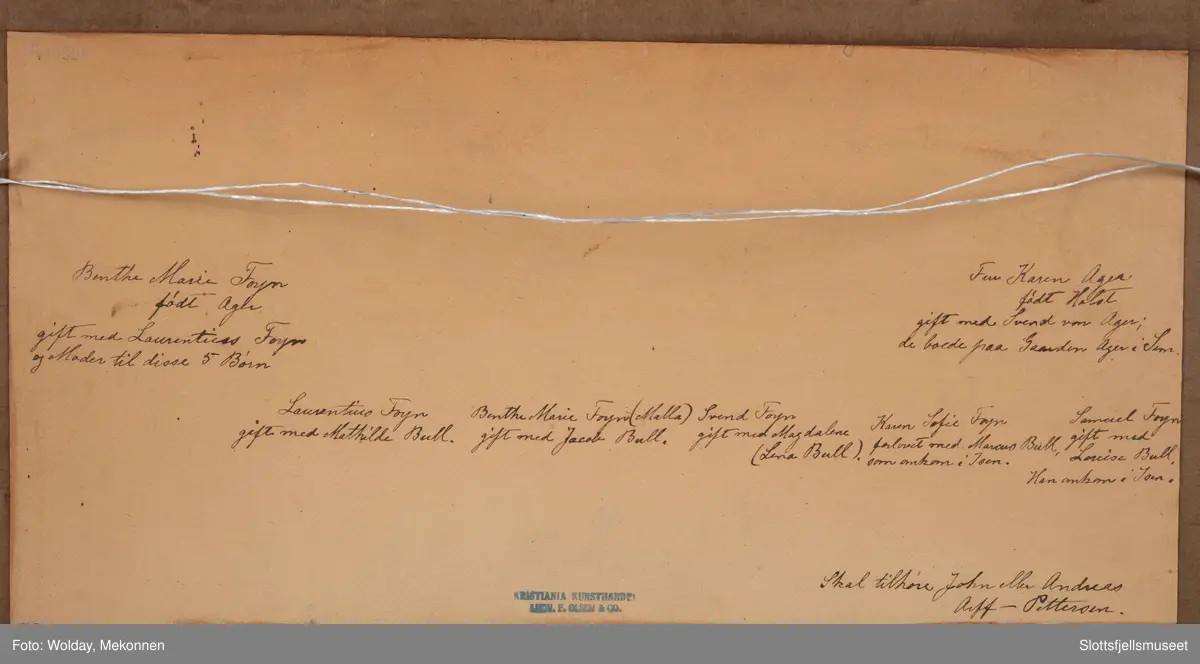 Benthe Marie Foyn
født Ager
gift med Laurentius Foyn
og Moder til disse 5 Børn
Fru Karen Ager
født Holst
gift med Svend von Ager;
de boede paa Gaarden Ager i Sem.
Laurentius Foyn
gift med Mathilde Bull.
Benthe Marie Foyn (Malla)
gift med Jacob Bull.
Svend Foyn
gift med Magdalene
(Lena Bull).
Karen Sofie Foyn
forlovet med Marcus Bull,
som omkom i Isen.
Samuel Foyn
gift med
Louise Bull.
Han omkom i Isen.
Skal tilhøre John eller Andreas
Arff - Pettersen.
KRISTIANIA KUNSTHANDEL
LUDV. F. OLSEN & CO.
Foto: Wolday, Mekonnen
Slottsfjellsmuseet